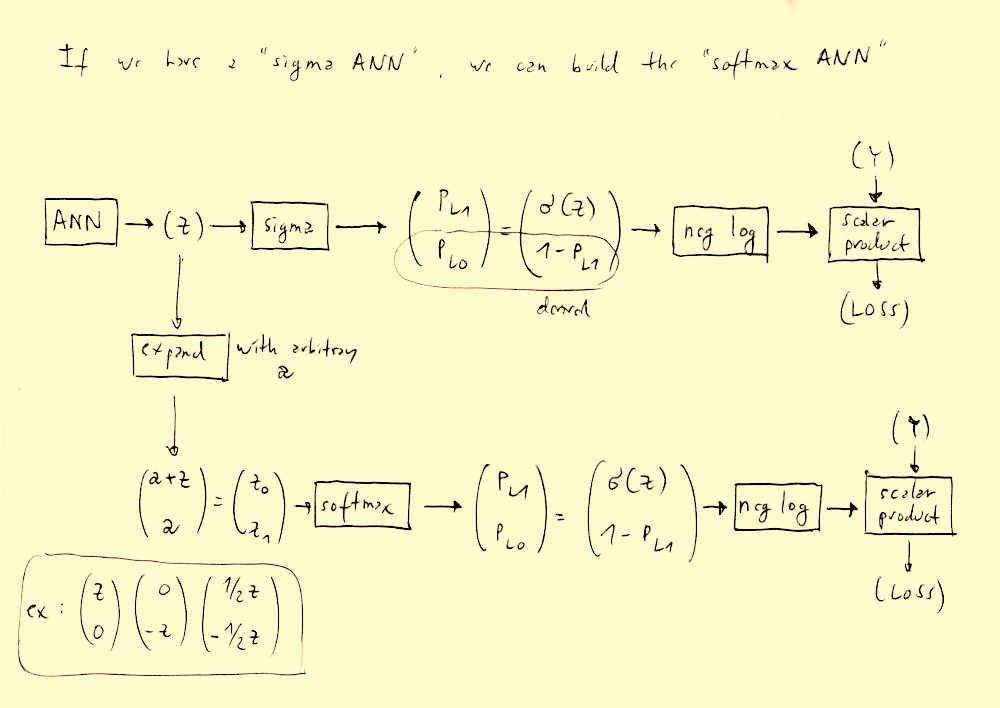 If we have a "sigma ANN", we can build the "softmax ANN"
(Y)
ANN → (z) → sigma → (P_L1 P_L0) = (σ(z) 1 - P_L1) → neg log → scalar product
(LOSS)
expand with arbitrary a
(Y)
(a+z a) = (z_0 z_1) → softmax → (P_L1 P_L0) = (σ(z) 1 - P_L1) → neg log → scalar product
(LOSS)
ex : (z 0) (0 -z) (1/2 z -1/2 z)